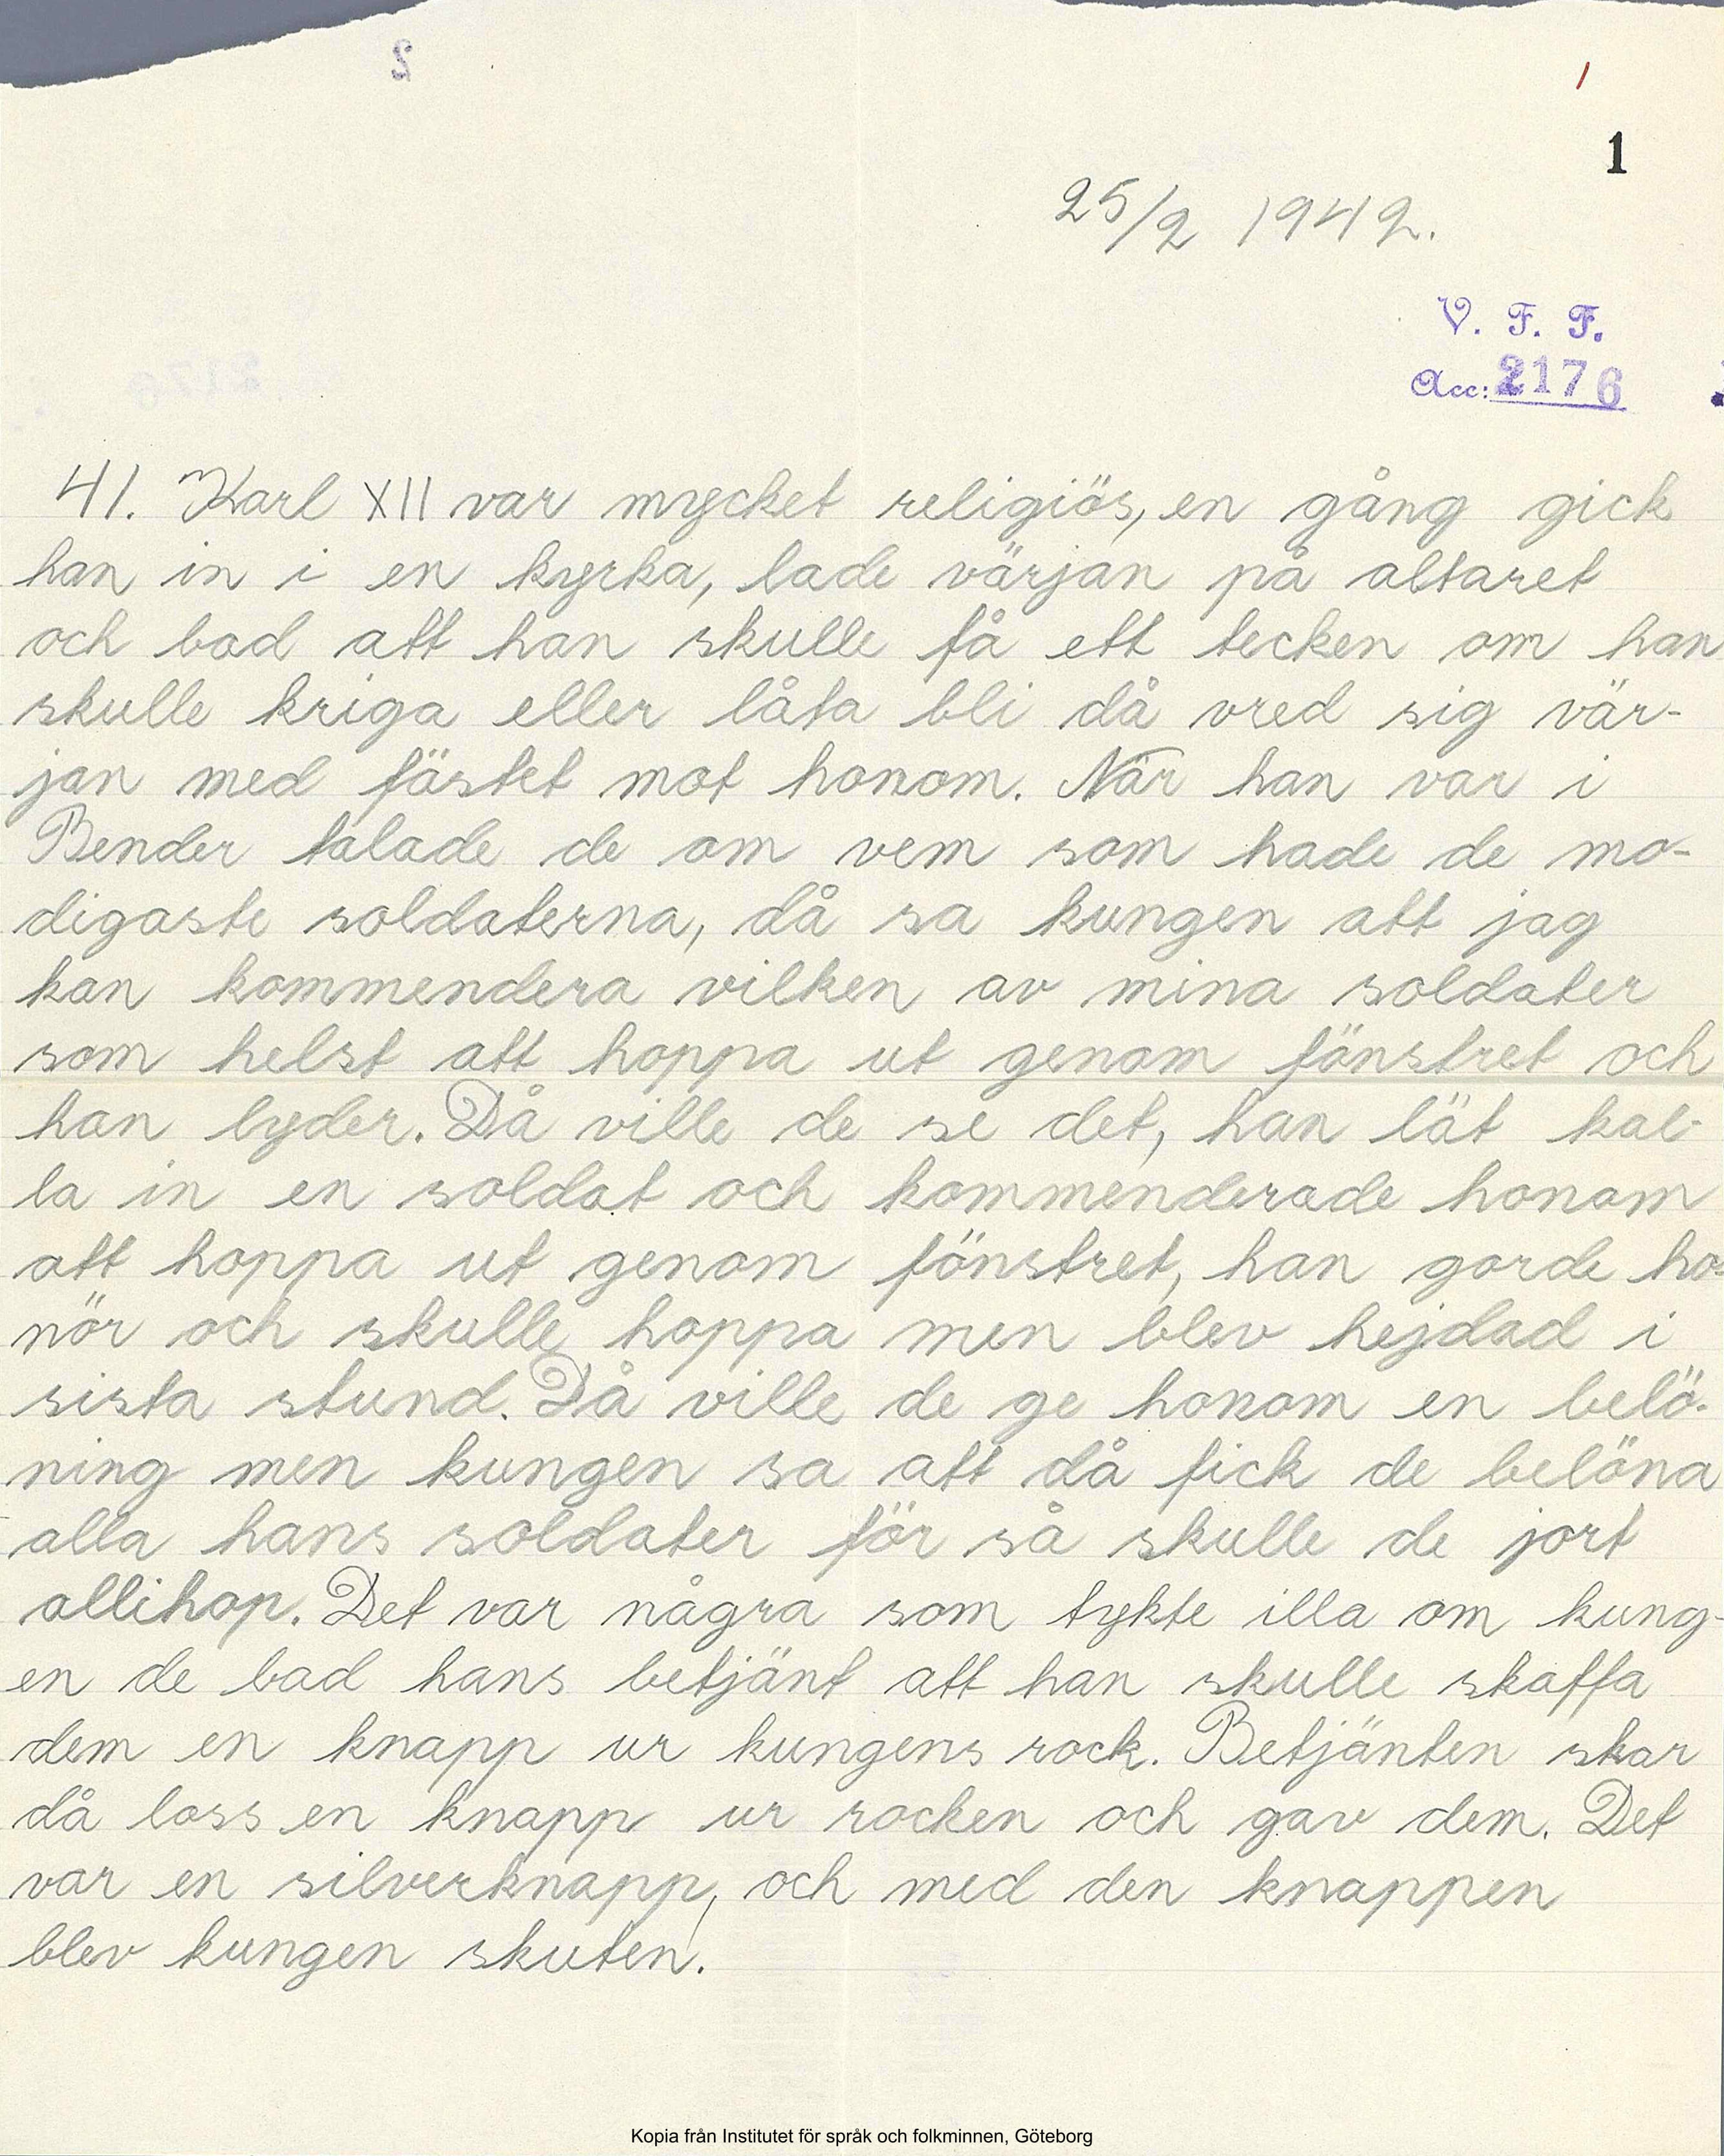 2
1
25/2 1942.
V. F. F.
Acc: 2176
41. Karl XII var mycket religiös, en gång gick
han in i en kyrka, lade värjan på altaret
och bad att han skulle få ett tecken om han
skulle kriga eller låta bli då vred sig vär-
jan med fästet mot honom. När han var i
Bender talade de om vem som hade de mo-
digaste soldaterna, då sa kungen att jag
kan kommendera vilken av mina soldater
som helst att hoppa ut genom fönstret och
han lyder. Då ville de se det, han lät kal-
la in en soldat och kommenderade honom
att hoppa ut genom fönstret, han gorde ho-
nör och skulle hoppa men blev hejdad i
sista stund. Då ville de ge honom en belö-
ning men kungen sa att då fick de belöna
alla hans soldater för så skulle de jort
allihop. Det var några som tykte illa om kung-
en de bad hans betjänt att han skulle skaffa
dem en knapp ur kungens rock. Betjänten skar
då loss en knapp ur rocken och gav dem. Det
var en silverknapp, och med den knappen
blev kungen skuten.
Kopia från Institutet för språk och folkminnen, Göteborg